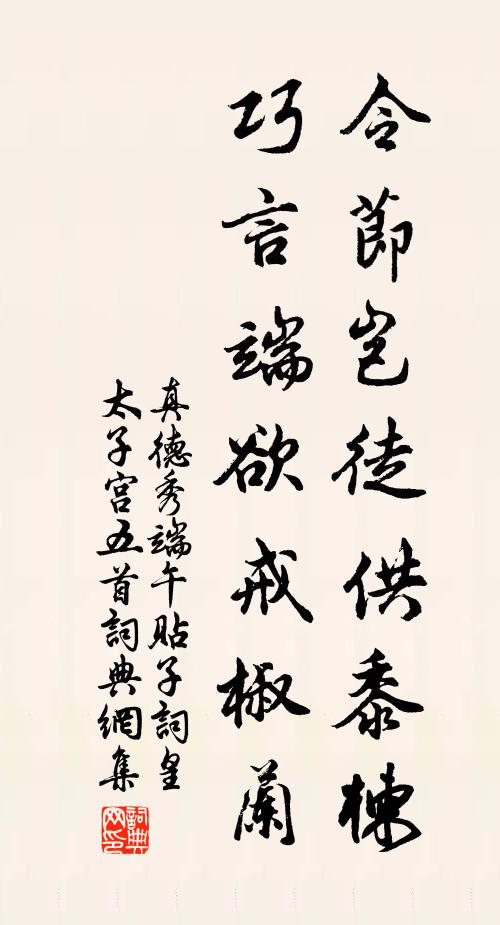 令節岂徒供黍楝
巧言端欲戒椒蘭
真德秀端午貼子詞皇
太子宫五首詞典網集
詞典
网印